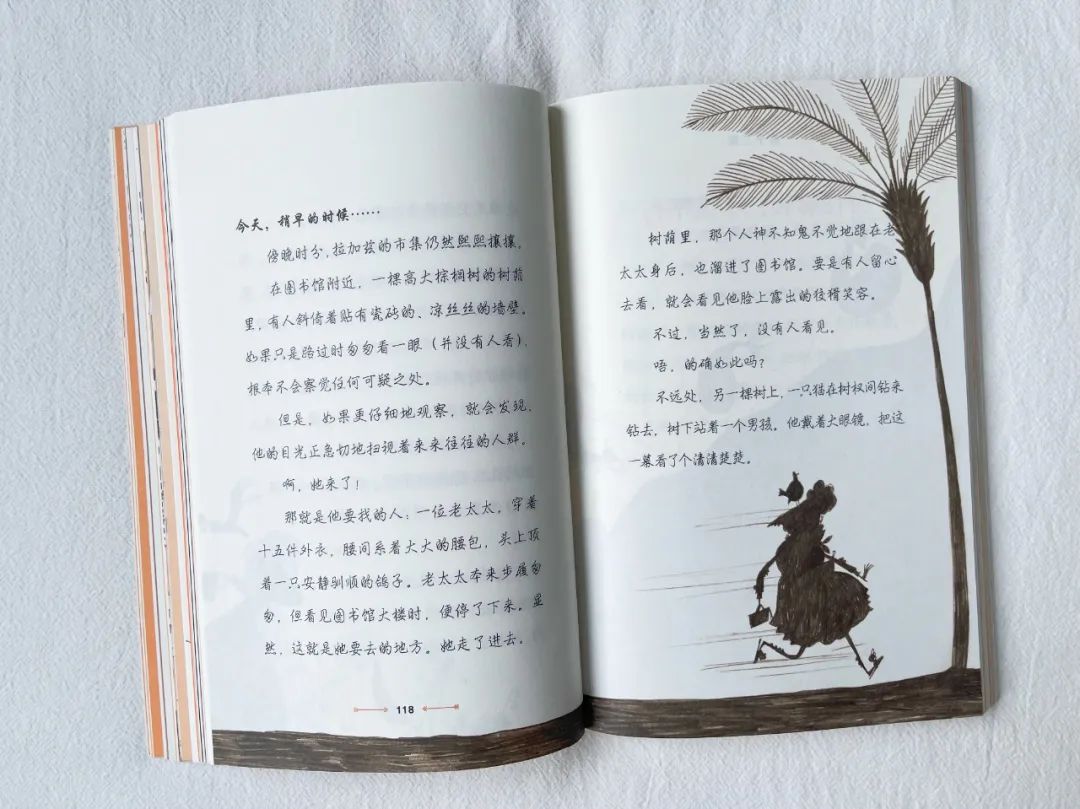 今天，稍早的时候……
傍晚时分，拉加兹的市集仍然熙熙攘攘。
在图书馆附近，一棵高大棕榈树的树荫
里，有人斜倚着贴有瓷砖的、凉丝丝的墙壁。
如果只是路过时匆匆看一眼（并没有人看），
根本不会察觉任何可疑之处。
但是，如果更仔细地观察，就会发现，
他的目光正急切地扫视着来来往往的人群。
啊，她来了！
那就是他要找的人：一位老太太，穿着
十五件外衣，腰间系着大大的腰包，头上顶
着一只安静驯顺的鸽子。老太太本来步履匆
匆，但看见图书馆大楼时，便停了下来。显
然，这就是她要去的地方。她走了进去。
118
树荫里，那个人神不知鬼不觉地跟在老
太太身后，也溜进了图书馆。要是有人留心
去看，就会看见他脸上露出的狡猾笑容。
不过，当然了，没有人看见。
唔，的确如此吗？
不远处，另一棵树上，一只猫在树杈间钻来
钻去，树下站着一个男孩。他戴着大眼镜，把这
一幕看了个清清楚楚。